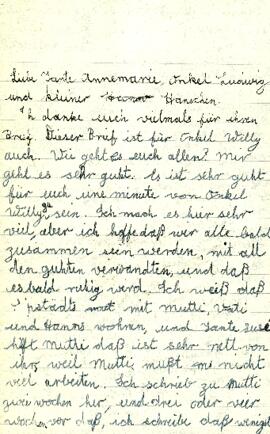 Liebe Tante Annemarie, Onkel Ludwig
und kleiner Hänschen.
Ich danke euch vielmals für ihren
Brief. Dieser Brief ist für Onkel Willy
auch. Wie geht es euch allen? Mir
geht es sehr guht. Es ist sehr guht
für euch eine minute von Onkel
Willy sein. Ich mach es hier sehr
viel, aber ich hoffe daß wir alle bald
zusammen sein werden, mit all
den guhten verwandten, und daß
es bald ruhig werd. Ich weiß daß
mit Mutti, Vati
und Hanns wohnen, und Tante Susi
hilft Mutti daß ist sehr nett von
ihr, weil Mutti mußt mi nicht
viel arbeiten. Ich schrieb zu Mutti
zwei wochen her, und drei oder vier
wochen vor daß, ich schreibe daß wenigst